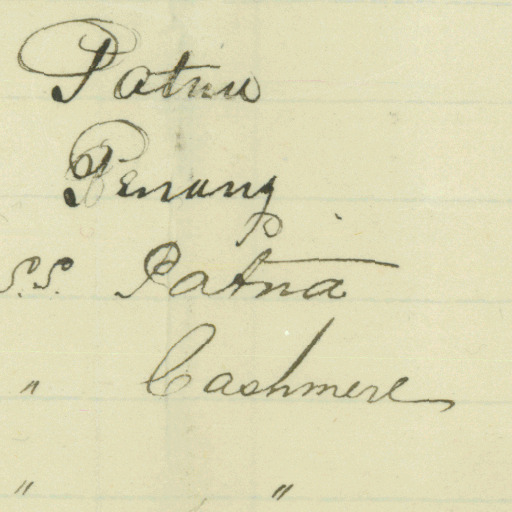 Patna
Penang
S.S. Patna
" Cashmere
" "